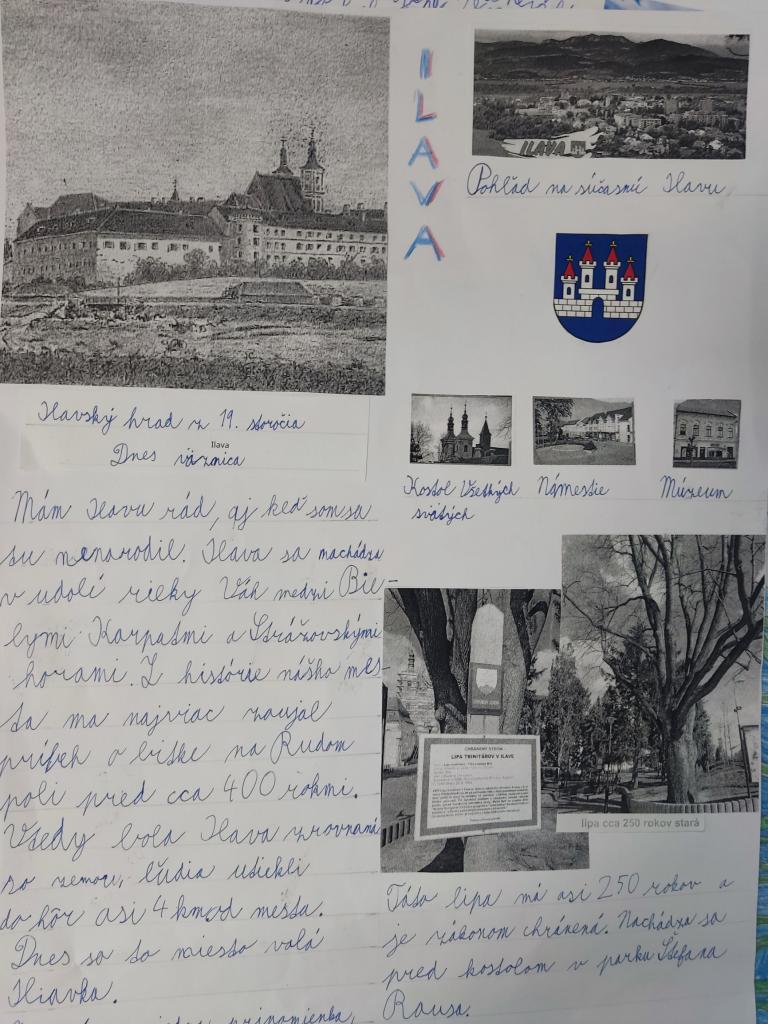 ILAVA
ILAVA
Pohľad na súčasnú Ilavu
Ilavský hrad z 19. storočia
Ilava
Dnes väznica
Kostol Všetkých
svätých
Námestie
Múzeum
Mám Ilavu rád, aj keď som sa
tu nenarodil. Ilava sa nachádza
v údolí rieky Váh medzi Bie-
lymi Karpatmi a Strážovskými
horami. Z histórie nášho mes-
ta ma najviac zaujal
príbeh o bitke na Rudom
poli pred cca 400 rokmi.
Vtedy bola Ilava zrovnaná
so zemou, ľudia utiekli
do hôr asi 4 km od mesta.
Dnes sa to miesto volá
Iliavka.
pripamienka,
CHRÁNENÝ STROM
LIPA TRINITÁROV V ILAVE
lipa cca 250 rokov stará
Táto lipa má asi 250 rokov a
je zákonom chránená. Nachádza sa
pred kostolom v parku Štefana
Rausa.